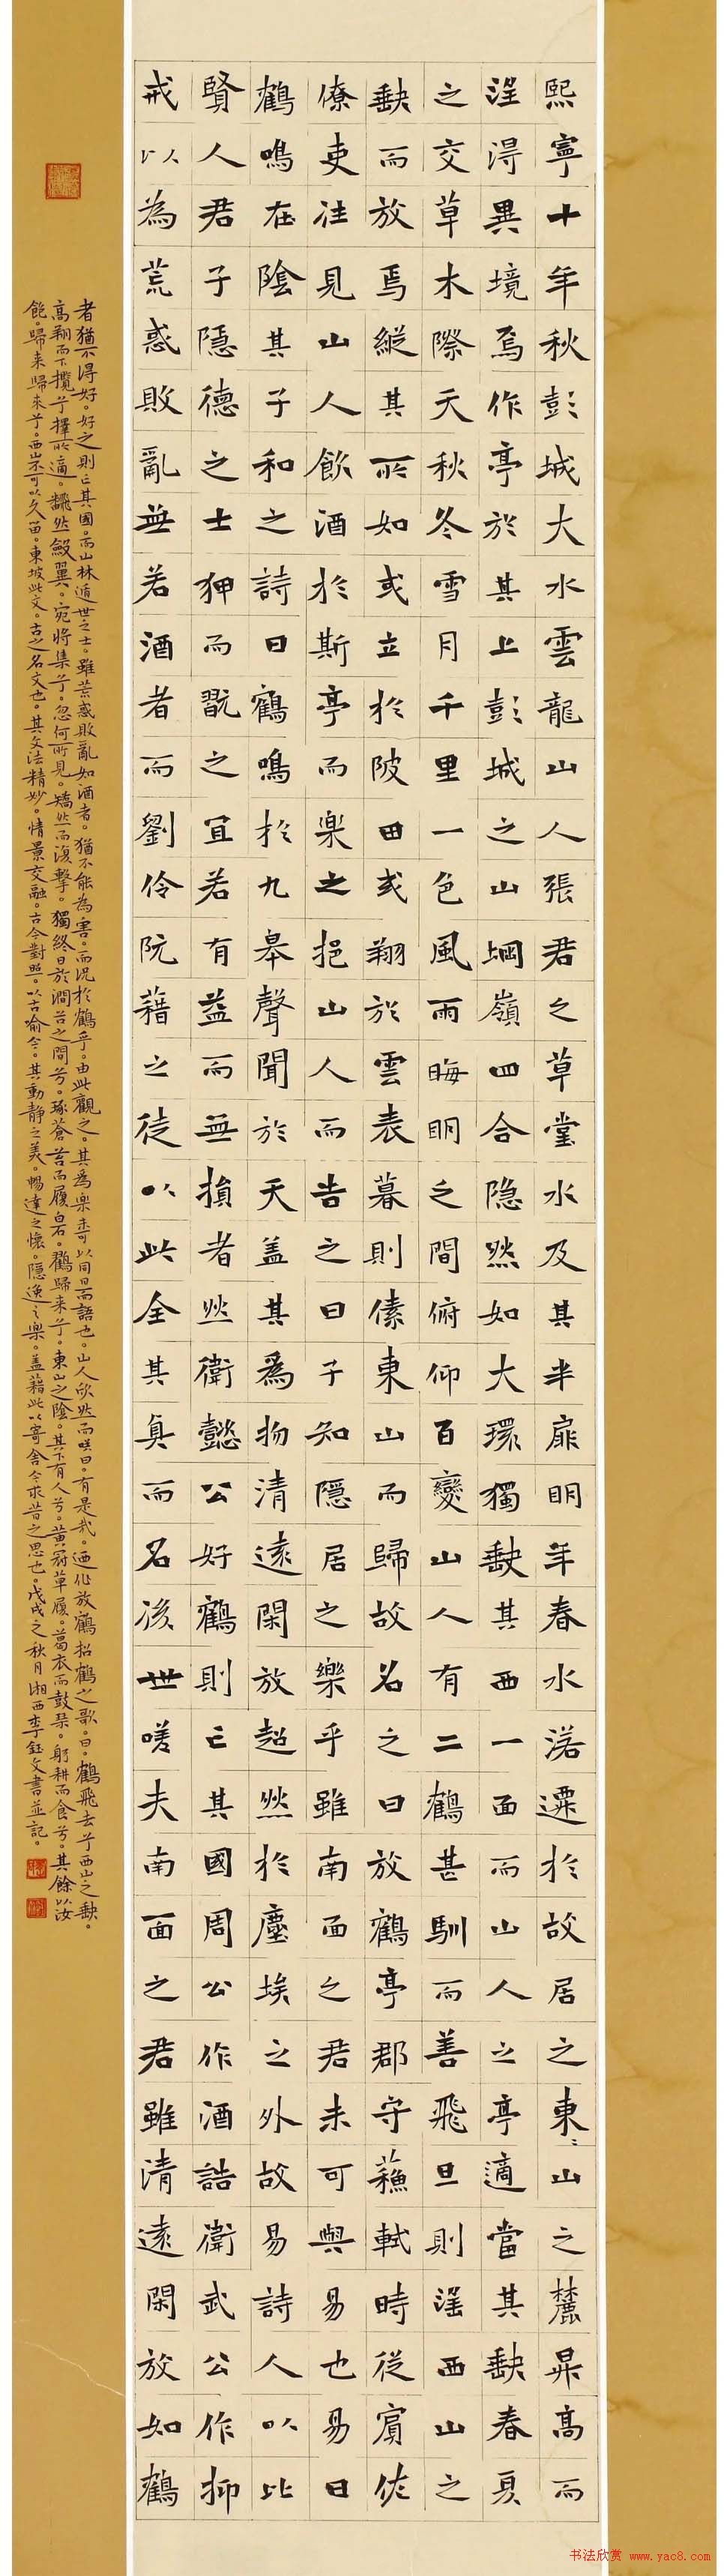 熙寧十年秋彭城大水雲龍山人張君之草堂水及其半扉明年春水落遷於故居之東〻山之麓昇高而
望得異境焉作亭於其上彭城之山岡嶺四合隐然如大環獨缺其西一面而山人之亭適當其缺春夏
之交草木際天秋冬雪月千里一色風雨晦明之間俯仰百變山人有二鶴甚馴而善飛旦則望西山之
缺而放焉縱其所如或立於陂田或翔於雲表暮則傃東山而歸故名之曰放鶴亭郡守蘇軾時從賓佐
僚吏往見山人飲酒於斯亭而樂之挹山人而告之曰子知隱居之樂乎雖南面之君未可與易也易曰
鶴鳴在陰其子和之詩曰鶴鳴於九皋聲聞於天蓋其爲物清遠閑放超然於塵埃之外故易詩人以比
賢人君子隱德之士狎而翫之宜若有益而無損者然衛懿公好鶴則亡其國周公作酒誥衛武公作抑
戒以為荒惑敗亂無若酒者而劉伶阮藉之徒以此全其真而名後世嗟夫南面之君雖清遠閑放如鶴
者猶不得好。好之則亡其國。而山林遁世之士。雖荒惑敗亂如酒者。猶不能為害。而況於鶴乎。由此觀之。其為樂未可以同日而語也。山人欣然而咲曰。有是哉。迺作放鶴招鶴之歌。曰。鶴飛去兮西山之缺。
高翔而下攬兮擇所適。翻然斂翼。宛將集兮。忽何所見。矯然而復擊。獨終日於澗谷之間兮。啄蒼苔而履白石。鶴歸来兮。東山之陰。其下有人兮。黄冠草履。葛衣而鼓琴。躬耕而食兮。其餘以汝
飽。歸来歸来兮。西山不可以久留。東坡此文。古之名文也。其文法精妙。情景交融。古今對照。以古喻今。其動静之美。暢達之懷。隱逸之樂。蓋藉此以寄舍今求昔之思也。戊戌之秋月湘西李鈺文書並記。
书法欣赏 www.yac8.com